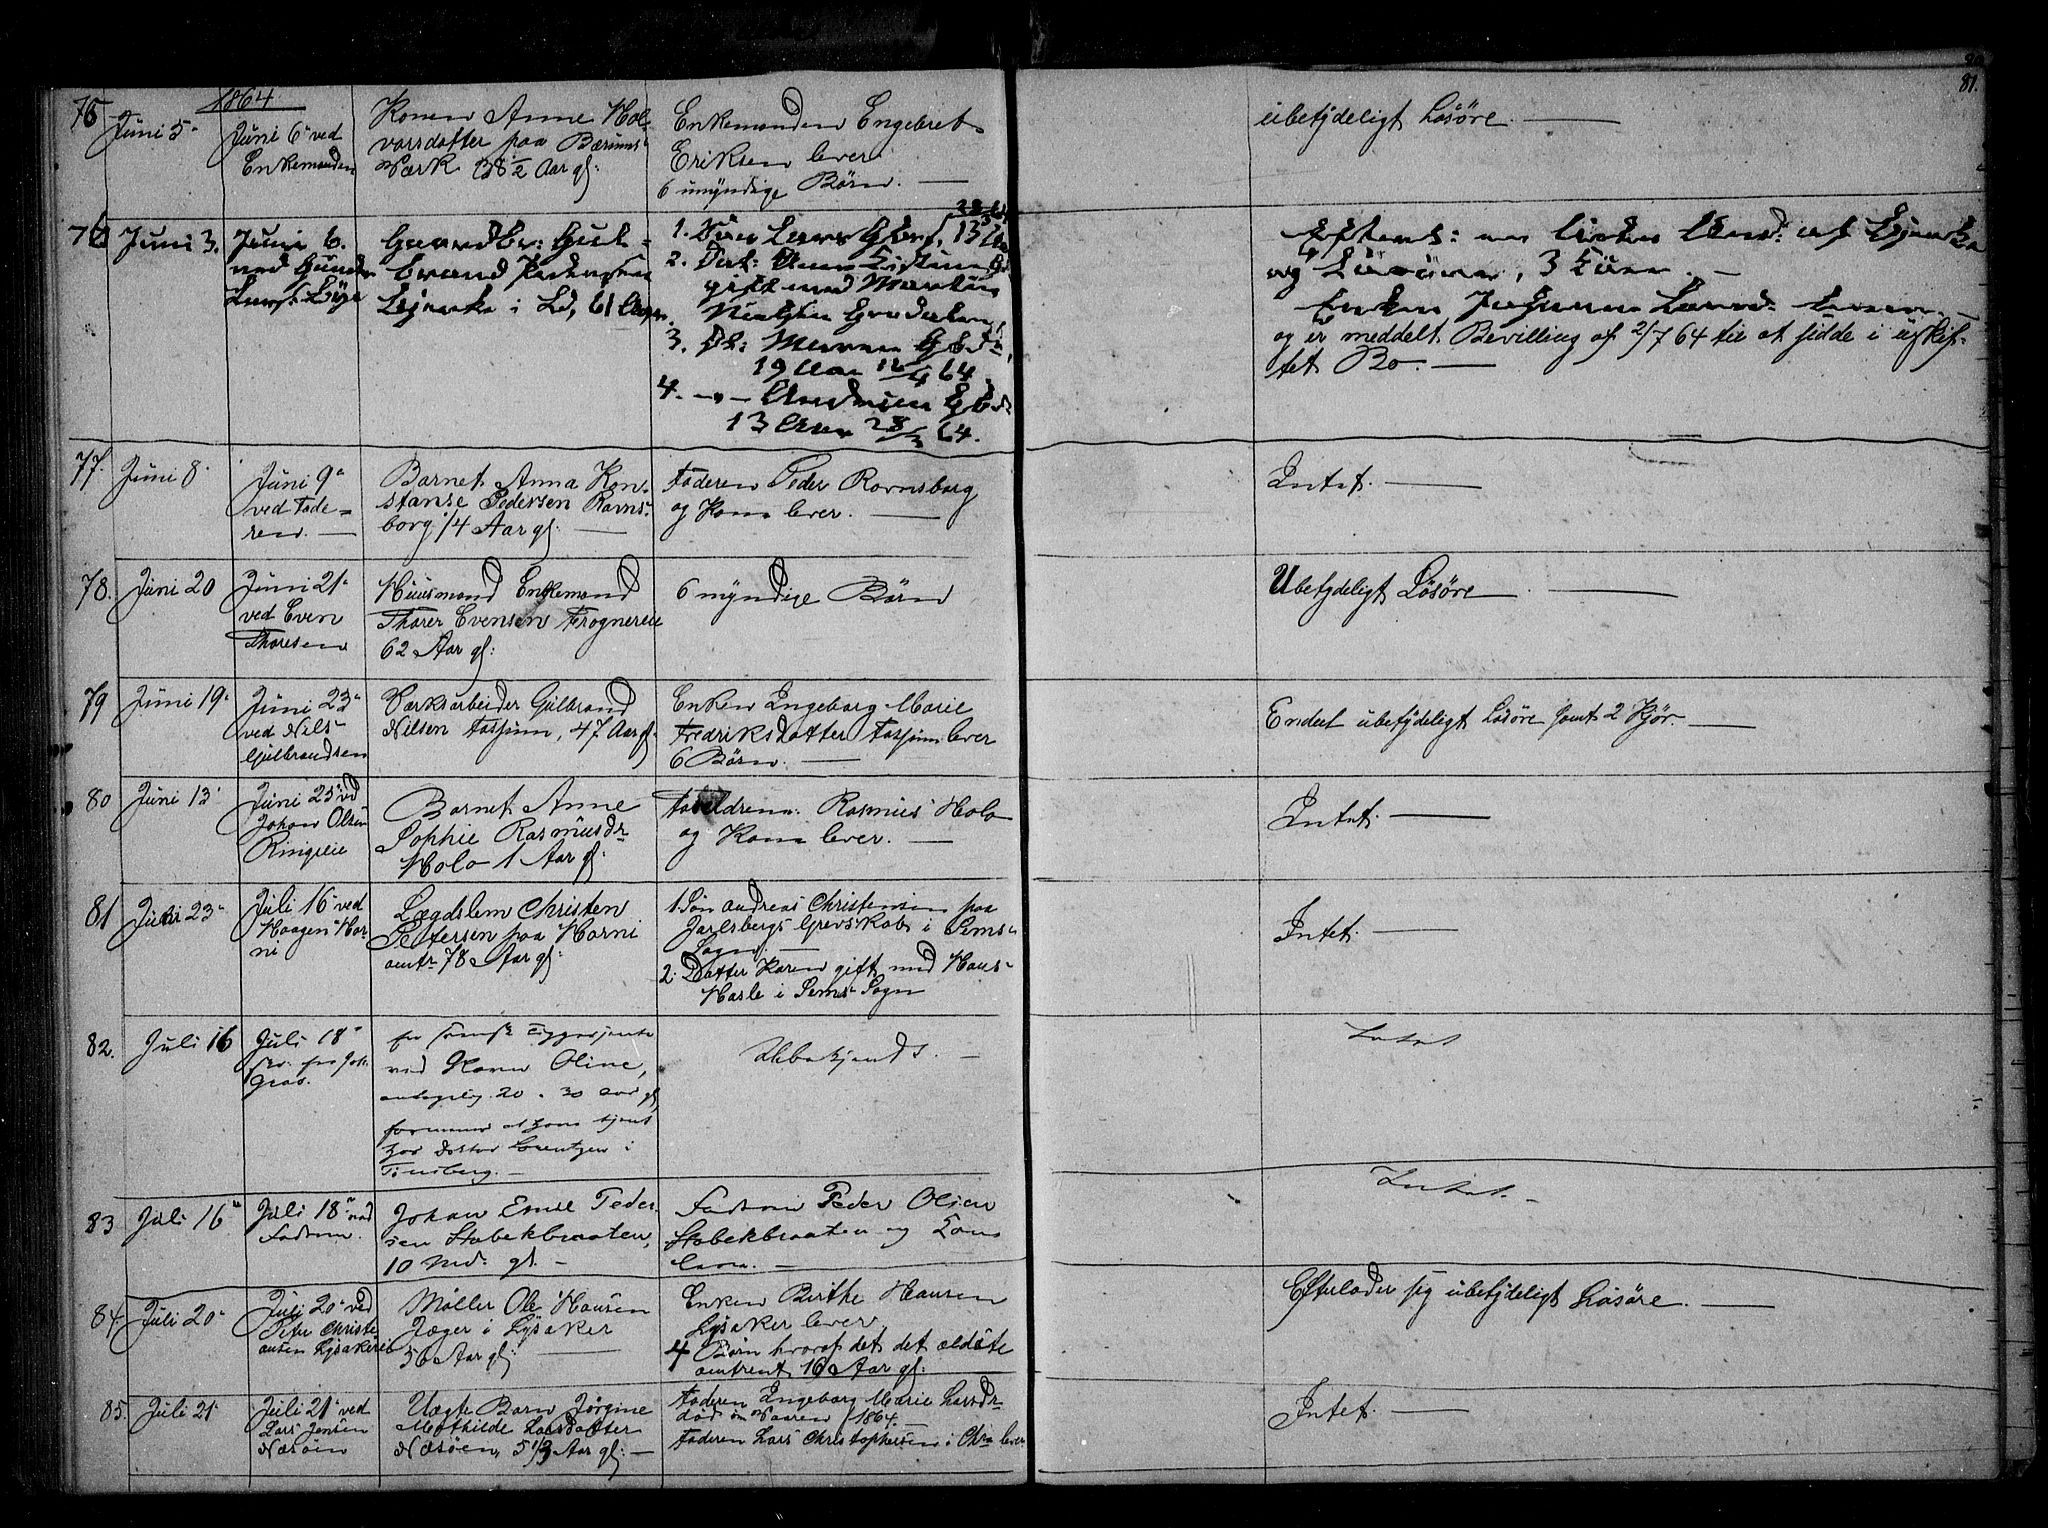 81.
1864
75
Juni 5
Juni 6 ved
Enkemanden
Konen Anne Hol-
varsdatter paa Bærums
Værk 38 1/2 Aar gl:
Enkemanden Engebret
Eriksen lever
6 umyndige Børn.
ubetydeligt Løsøre.
76
Juni 3.
Juni 6.
ved Gunder
Gaardbr: Gul-
brand Pedersen
61 Aar
1. Søn Lars Gbrs. 13
2. Dat: Anne
gift med Martin
Nielsen
3. Dt: Maren Gbd.
19 Aar 12/4 64.
4. -"- Andrine Gbd.
13 Aar 28/3 64.
og Løsøre, 3 Køer.
Enken
og er meddelt Bevilling af 2/7 64 til at sidde i uskif-
tet Bo.
77.
Juni 8
Juni 9
ved Fade-
ren.
Barnet Anna Kon-
stanse Pedersen Ravns-
borg 1/4 Aar gl.
Faderen Peder Ravnsborg
og Kone lever.
Intet.
78.
Juni 20
Juni 21
ved Even
Thoresen
Huusmand Enkemand
Thorer Evensen Frognereie
62 Aar gl:
6 myndige Børn
Ubetydeligt Løsøre
79
Juni 19
Juni 23
ved Nils
Gulbrandsen
Værksarbeider Gulbrand
Nilsen Fossum, 47 Aar gl.
Enken Ingeborg Marie
Fredriksdatter Fossum lever
6 Børn.
Endeel ubetydeligt Løsøre samt 2 Kjør
80
Juni 13
Juni 25 ved
Johan Olsen
Ringieie
Barnet Anne
Sophie Rasmusdr
Holo 1 Aar gl.
Forældrene Rasmus Holo
og Kone lever.
Intet.
81
Juni 23
Juli 16 ved
Haagen Hor-
ni
Lægdslem Christen
Pettersen paa Horni
omtr 78 Aar gl:
1. Søn Andreas Christensen paa
Jarlsbergs Grevskab i Sems
Sogn.
2. Datter Karen gift med Hans
Hasle i Sems Sogn
Intet.
82.
Juli 16
Juli 18
Grav.
en svensk Tiggerjente
ved Navn Oline,
antagelig 20 a 30 aar gl
formener at have tjent
hos Doktor Lorentzen i
Tønsberg.
Ubekjendt.
Intet
83
Juli 16
Juli 18 ved
Faderen.
Johan Emil Peder-
sen Stabekbraaten,
10 Md: gl.
Faderen Peder Olsen
Stabekbraaten og Kone
lever.
Intet.
84.
Juli 20
Juli 20 ved
Peter Christi-
ansen Lysakereie
Møller Ole Hansen
Jæger i Lysaker
56 Aar gl:
Enken Berthe Hansen
Lysaker lever.
4 Børn hvoraf det det ældste
omtrent 16 Aar gl:
Efterlader sig ubetydeligt Løsøre.
85.
Juli 21
Juli 21 ved
Lars Jensen
Næsøen
Uægte Barn Jørgine
Mathilde Larsdatter
Næsøen, 5 1/3 Aar gl:
Faderen Ingeborg Marie Larsdr
død om Vaaren 1864.
Faderen Lars Christophersen i Chra lever
Intet.